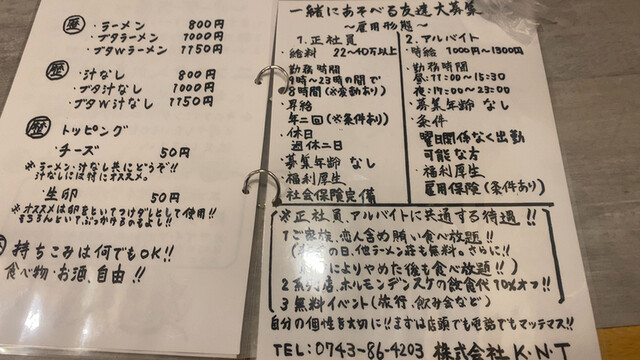 歴
・ラーメン 800円
・ブタラーメン 1000円
・ブタWラーメン 1150円
歴
・汁なし 800円
・ブタ汁なし 1000円
・ブタW汁なし 1150円
歴 トッピング
・チーズ 50円
※ラーメン・汁なし共にどうぞ!!
汁なしには特にオススメ。
・生卵 50円
※オススメは卵をといてつけダレとして使用!!
もちろんといてぶっかけるのもよし!!
持ちこみは何でもOK!!
食べ物・お酒、自由!!
一緒にあそべる友達大募集
～雇用形態～
1.正社員
・給料 22～40万以上
・勤務時間
9時～23時の間で
8時間(※変動あり)
・昇給
年二回(※条件あり)
・休日
週休二日
・募集年齢 なし
・福利厚生
社会保険完備
2.アルバイト
・時給 1000円～1300円
・勤務時間
昼:11:00～15:30
夜:17:00～23:00
・募集年齢 なし
・条件
曜日関係なく出勤
可能な方
・福利厚生
雇用保険(条件あり)
※正社員、アルバイトに共通する待遇!!
1ご家族、恋人含め賄い食べ放題!!
の日、他ラーメン荘も無料。さらに!!
によりやめた後も食べ放題!!)
2系列店、ホルモンデンスケの飲食代10%オフ!!
3無料イベント(旅行、飲み会など)
自分の個性を大切に!!まずは店頭でも電話でもマッテマス!!
TEL:0743-86-4203 株式会社 K・N・T